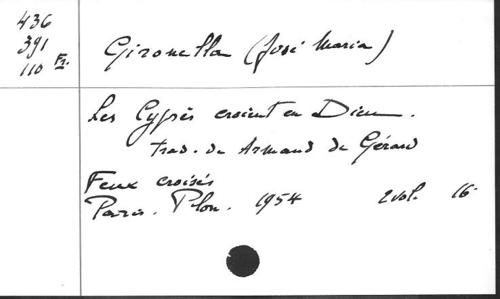 436
391
110 Fr.
Gironella (José Maria)
Les Cyprès croient en Dieu.
Trad. de Armand de Gérard
Feux croisés
Paris. Plon. 1954 2 vol. 16°